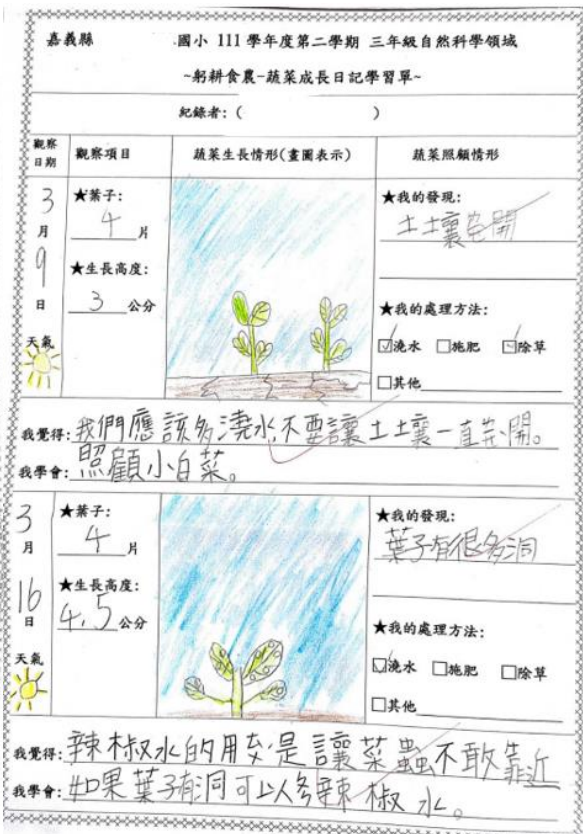 嘉義縣 國小 111 學年度第二學期 三年級自然科學領域
~躬耕食農-蔬菜成長日記學習單~
紀錄者:( )
觀察日期 觀察項目 蔬菜生長情形(畫圖表示) 蔬菜照顧情形
3月9日
天氣
★葉子:
4片
★生長高度:
3公分
★我的發現:
土土壤
開
★我的處理方法:
☑澆水 □施肥 ☑除草
□其他
我覺得:我們應該多澆水,不要讓土土壤一直 開。
我學會:照顧小白菜。
3月16日
天氣
★葉子:
4片
★生長高度:
4.5公分
★我的發現:
葉子有很多洞
★我的處理方法:
☑澆水 □施肥 □除草
□其他
我覺得:辣椒水的用 是讓菜蟲不敢靠近
我學會:如果葉子有洞可以多辣椒水。